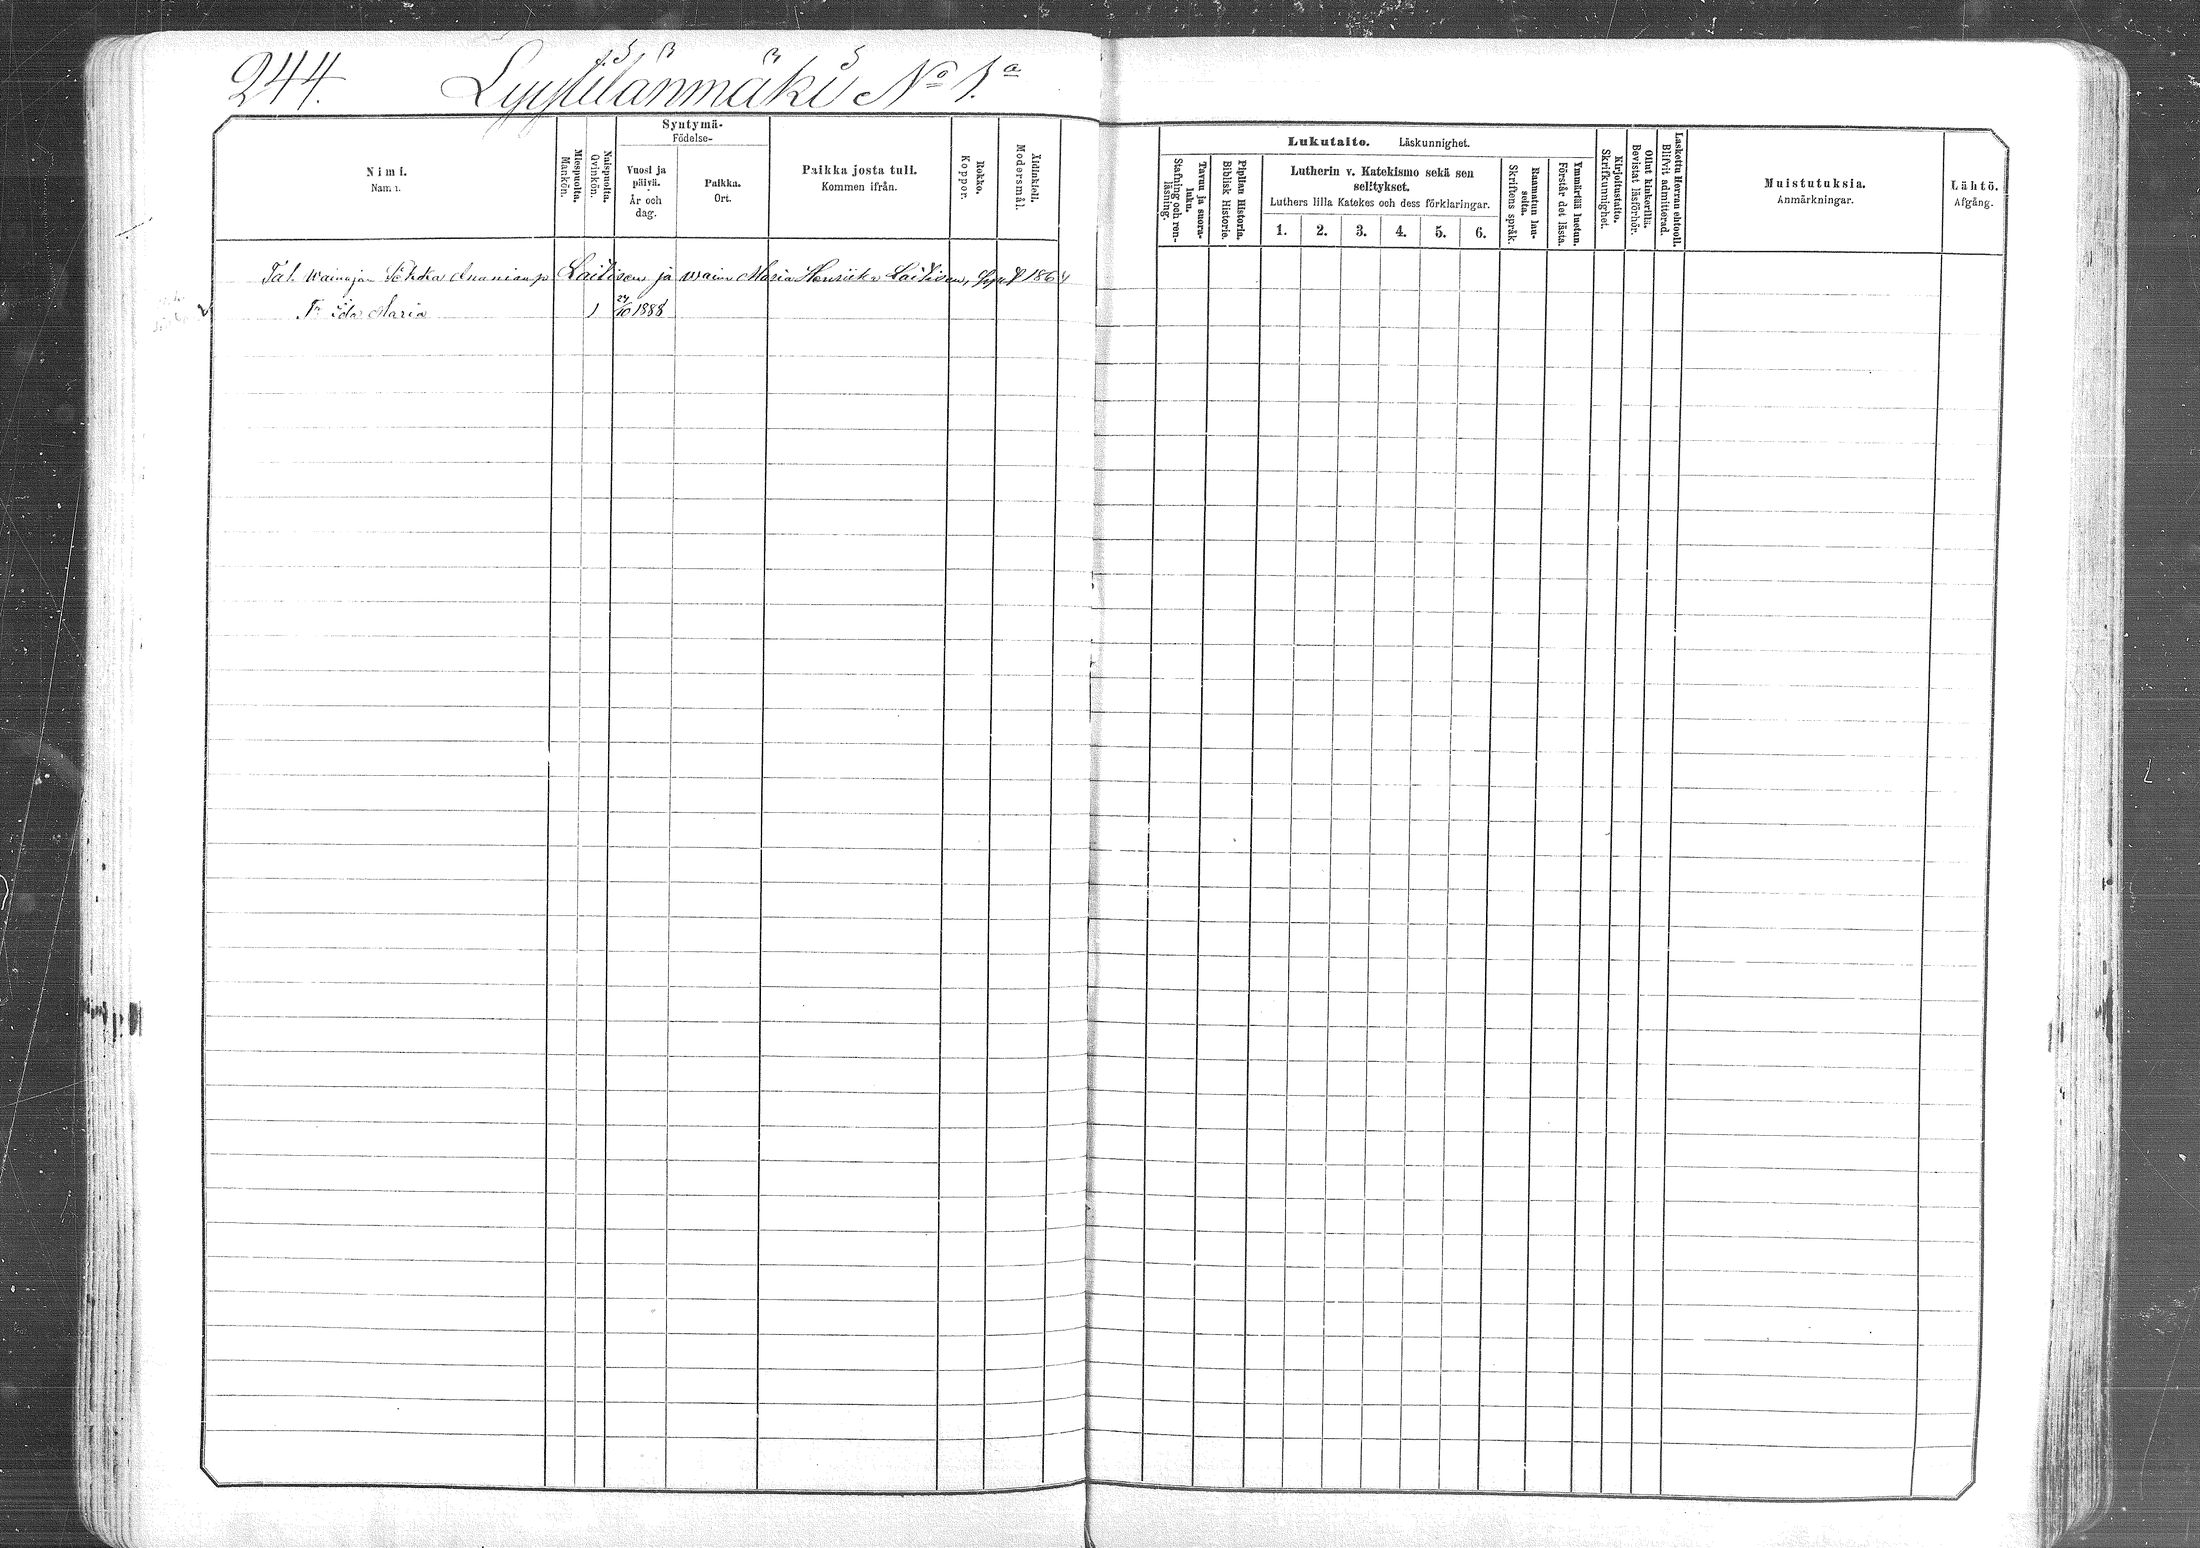 244. Lyytilänmäki No 1.a
Nimi.
Namn.
Miespuolia.
Mankön.
Naispuolia.
Qvinkön.
Syntymä-
Födelse-
Vuosi ja
päivä.
År och
dag.
Paikka.
Ort.
Paikka josta tuli.
Kommen ifrån.
Rokko.
Koppor.
Äidinkieli.
Modersmål.
Tavuu ja suora-
luku.
Stafning och ren-
läsning.
Piplian Historia.
Biblisk Historie.
Lukutaito. Läskunnighet.
Lutherin v. Katekismo sekä sen
selitykset.
Luthers lilla Katekes och dess förklaringar.
1. 2. 3. 4. 5. 6.
Raamatun lau-
seita.
Skriftens språk.
Ymmärtää luetun.
Förstår det lästa.
Kirjoitustaito.
Skrifkunnighet.
Ollut kinkerillä.
Bevistat läsförhör.
Laskettu Herran ehtooll.
Blifvit admitterad.
Muistutuksia.
Anmärkningar.
Lähtö.
Afgång.
Tal. wainajan Ananianp. Laitisen ja waim Maria Henriika Laitisen, 1864
T. Ida Maria 1 24/10 1888